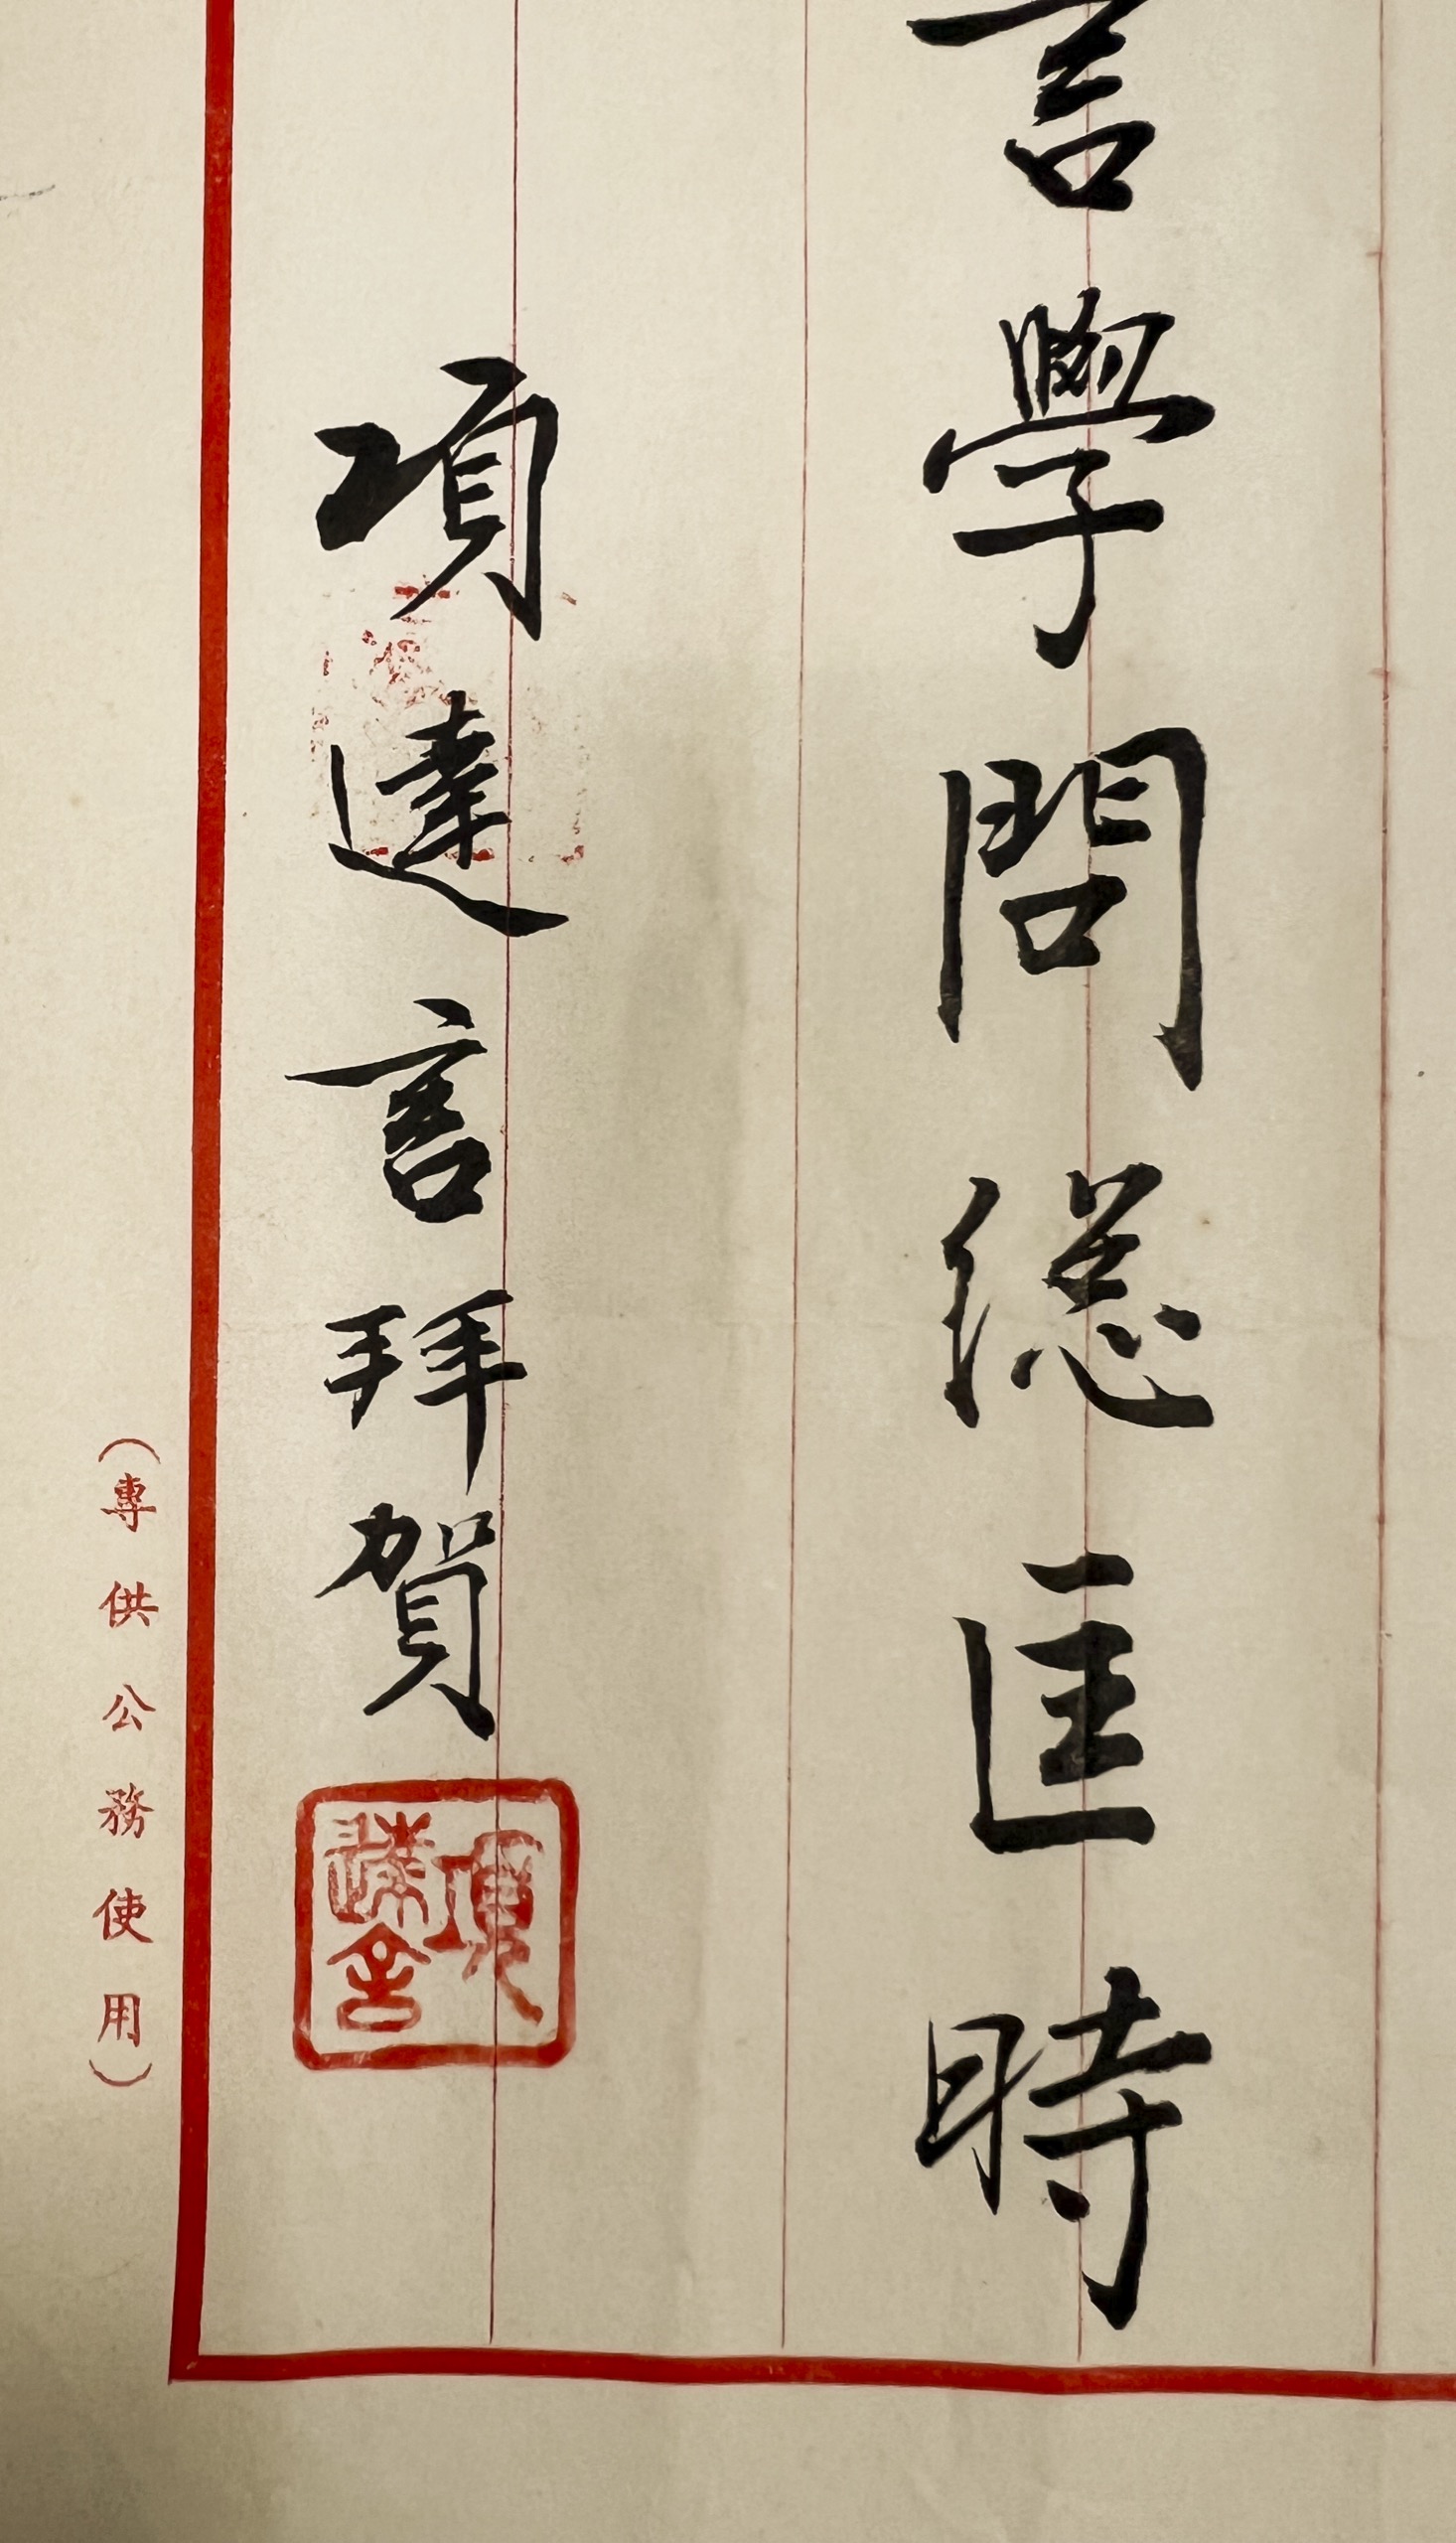 言學問總匡時
項達言拜賀
項達言
（專供公務使用）